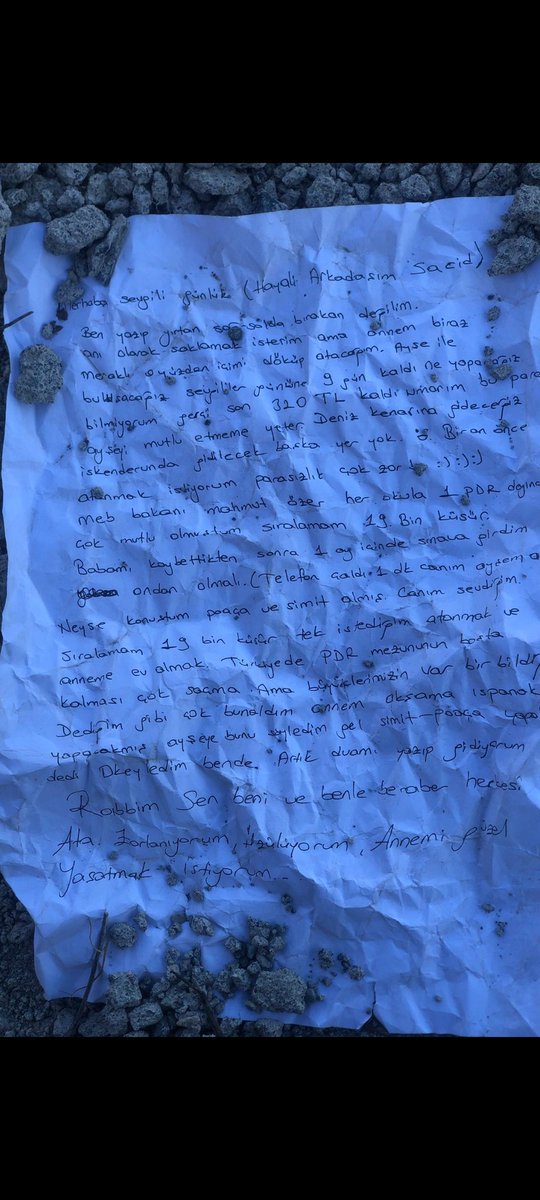 Merhaba sevgili günlük (Hayali Arkadaşım Sacid)
Ben yazıp yırtan sağa sola bırakan değilim.
anı olarak saklamak isterim ama annem biraz
meraklı o yüzden içimi döküp atacağım. Ayşe ile
buluşacağız sevgililer gününe 9 gün kaldı ne yapacağız
bilmiyorum gerçi son 320 TL kaldı umarım bu para
ayşeyi mutlu etmeme yeter. Deniz kenarına gideceğiz
iskenderunda gidilecek başka yer yok. Bir an önce
atanmak istiyorum parasızlık çok zor :) :) :)
Meb bakanı mahmut özer her okula 1 PDR
çok mutlu olmuştum sıralamam 19. Bin küsür.
Babamı kaybettikten sonra 1 ay içinde sınava girdim
ondan olmalı. (Telefon çaldı. 1 dk canım ayşem
Neyse konuştum poaça ve simit almış. Canım sevdiğim.
Sıralamam 19 bin küsür tek istediğim atanmak ve
anneme ev almak. Türkiyede PDR mezununun boşta
kalması çok saçma. Ama büyüklerimizin var bir
Dediğim gibi çok bunaldım annem akşama ıspanak
yapacakmış ayşeye bunu söyledim gel simit-poaça
dedi Okeyledim bende. Artık duamı yazıp gidiyorum
Rabbim Sen beni ve benle beraber herkesi
Ata. Zorlanıyorum, üzülüyorum, Annemi güzel
Yaşatmak istiyorum...